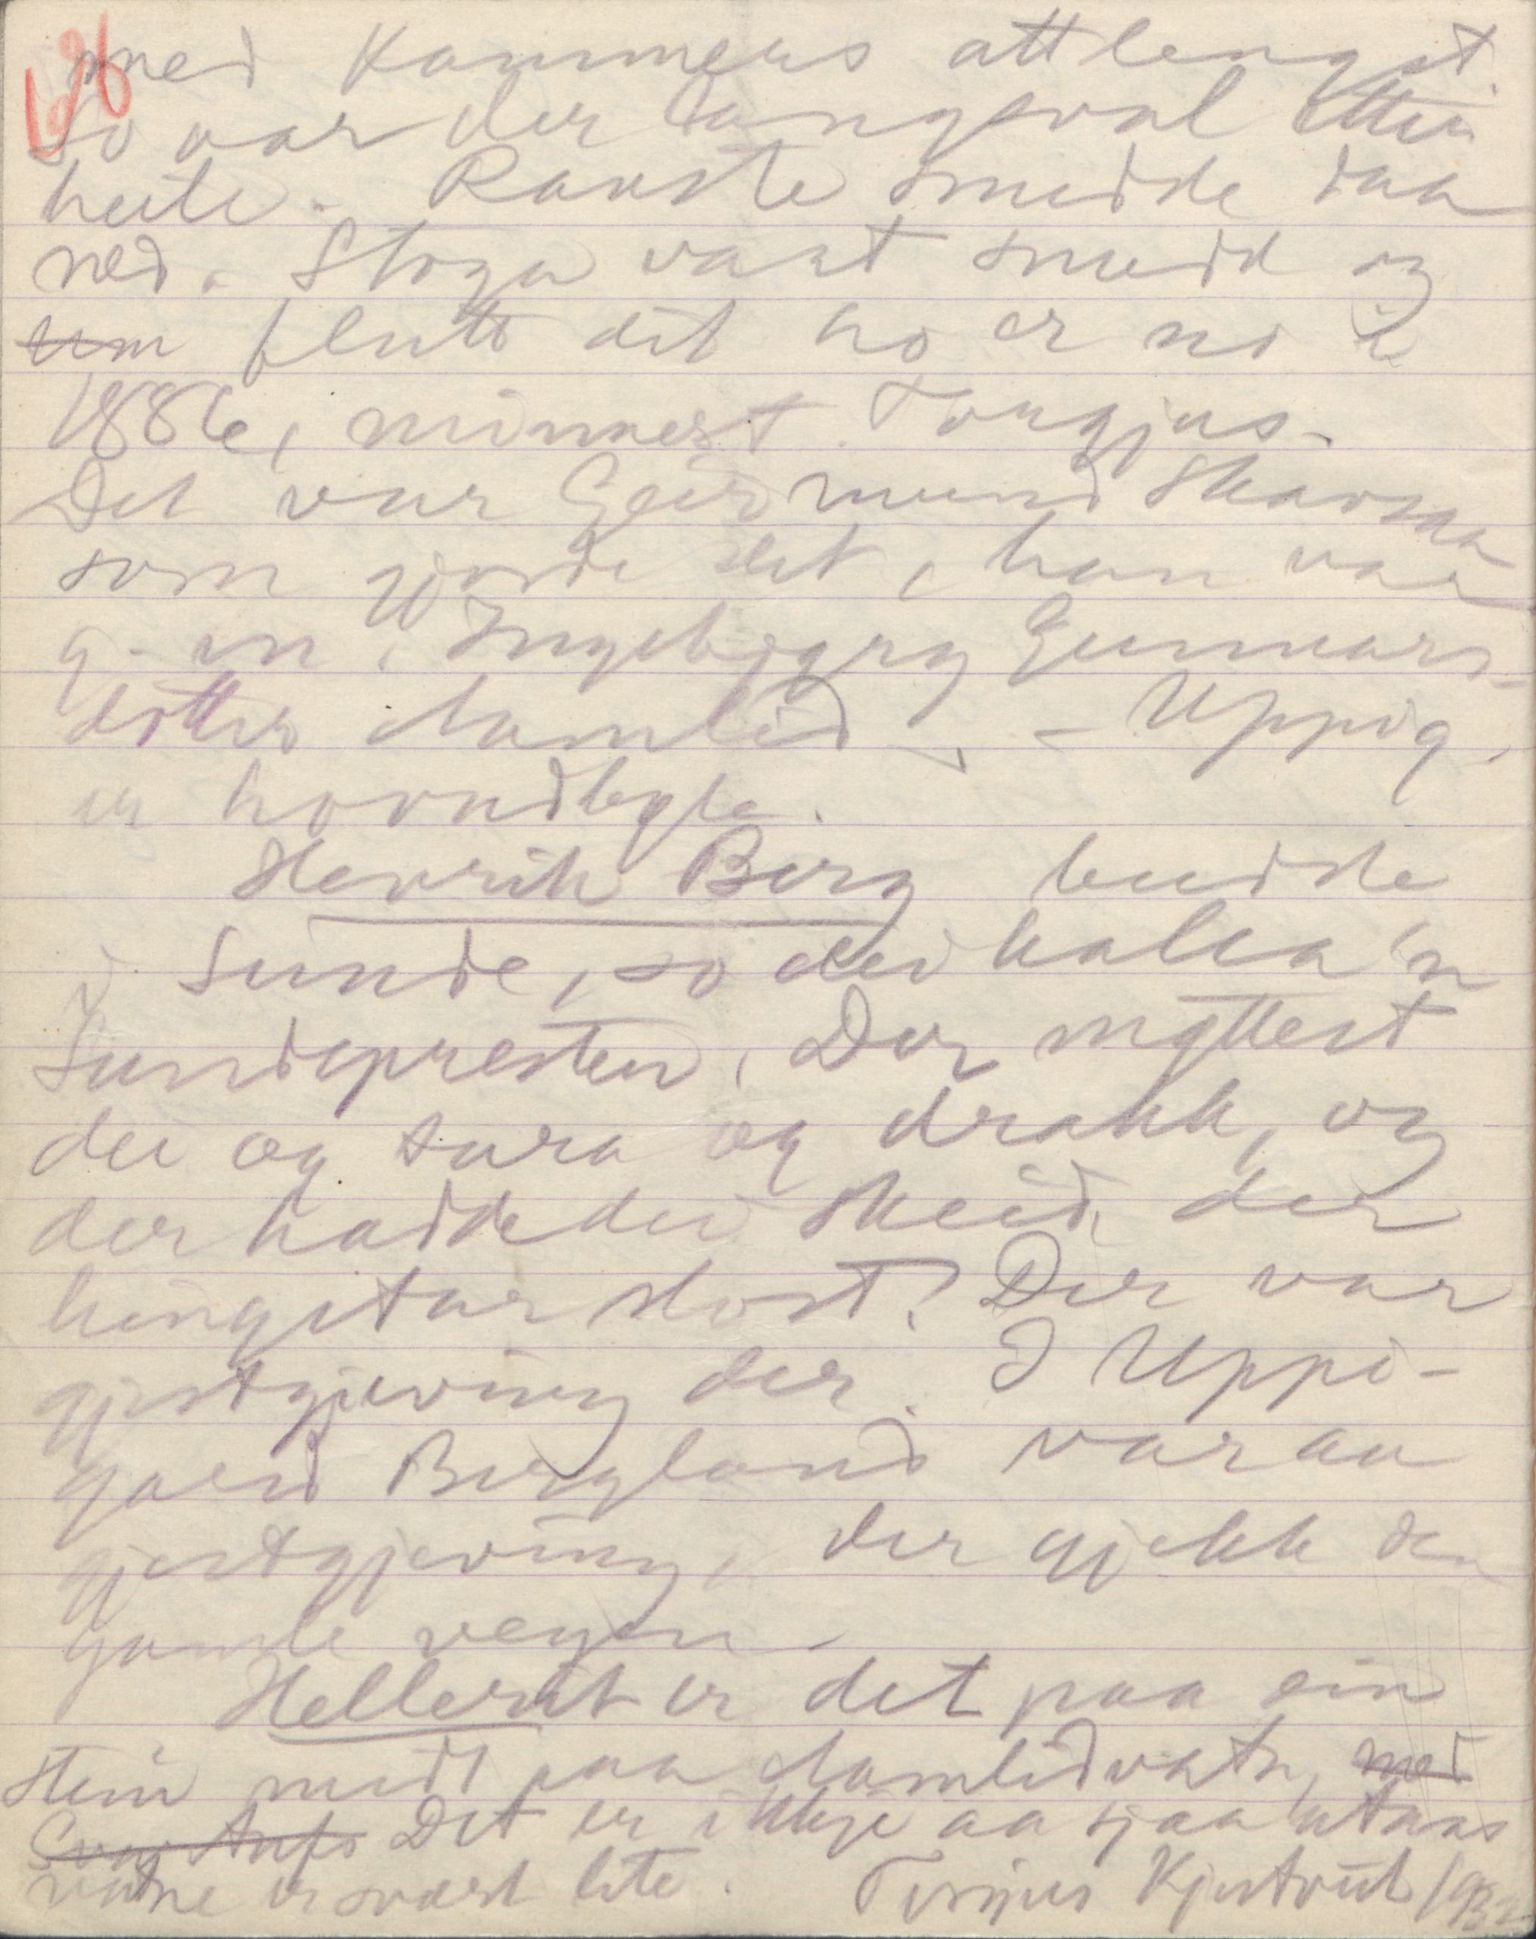 med Kammers attlengst.
So var der Langsval etter
heile. Rauste snidde daa
ned. Stoga vart snidd og
um flutt dit ho er no i
1886, minnest Torgjus.
Det var Geirmund Skarsaa
som gjorde det, han var
g. m. Ingebjørg Gunnars-
dotter Aamlid. - Uppig.
er hovudbyle.
Henrik Berg budde
i Sunde, so dei kalla'n
Sundepresten. Der møttest
dei og svira og drakk, og
der hadde dei skeid, der
hingstar slost. Der var
gjestgjeving der. I Uppi-
gard Bergland var au
gjestgjeving, der gjekk den
gamle vegen.
Hellerut er det paa ein
stein midt paa Aamlidvatn, med
Det er ikkje aa sjaa utaas
vatne er svært lite. Torgjus Kjestveit 1932